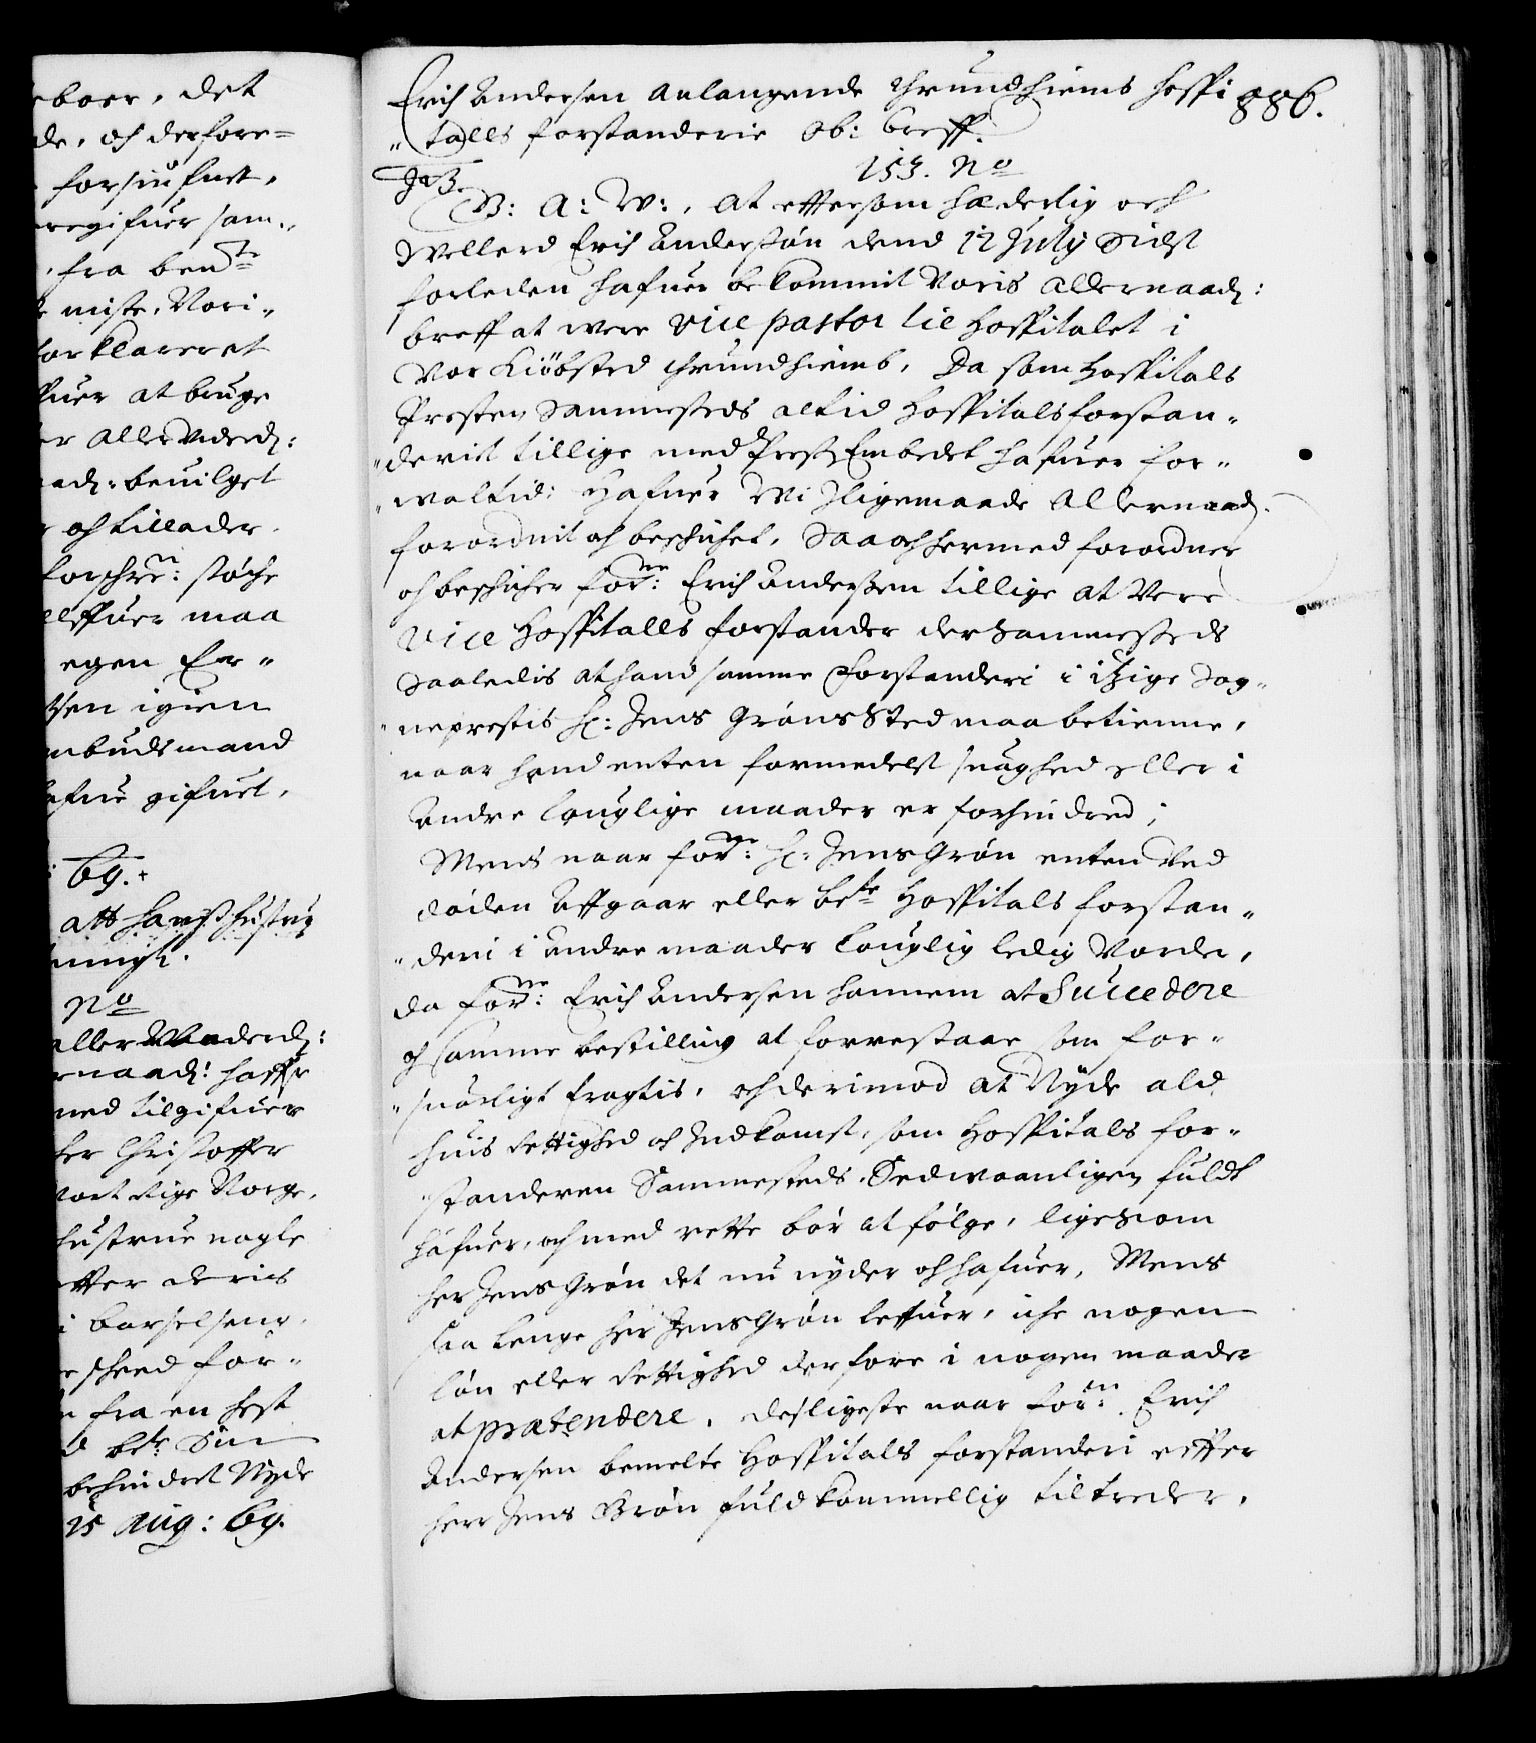 eboer, det
de, och derfore=
forsiufnet,
eregifuer sam„
fra bente
miste, Vori„
forklareret
fuer at bruge
er Alle Viderl:
aad: beuilget
och tillader
forschrne: støche
leffuer maa
egen Er„
sen igien
mbudsmand
afue gifuet,
69.
att hanß hustru
No
aller Vnderd:
naad: haffe
med tilgifuer
her Christoffer
vort Rige Norge,
hustrue nogle
efter deris
i barselseng,
scheed for„
fra en hest
bete Sin
behindret Nyde
25 Aug: 69.
Erich Andersen Anlangende Thrundhiems Hospi 886.
„talls forstanderie Ob: breff.
153. No
G: A: W:, At eftersom Hæderlig och
Wellerd Erich Andersøn dend 12 July Sidst
forleden hafuer bekommit Voris Allernaad:
breff at were Vice pastor til Hospitalet i
Vor Kiøbsted Thrundhiemb, Da som Hospitals
Presten Sammesteds altid Hospitals forstan„
„derit tillige med Prest Embedet hafuer for„
„waltid: Hafuer Wi Jligemaade Allernaad.
forordnit och beschichet, Saa och hermed forordner
och beschicher forne: Erich Andersen tillige at Vere
Vice Hospitalls forstander der Sammesteds
Saaledis at hand samme forstanderi i itzige Sog„
„neprestis H: Jens Grøns Sted maa betienne,
naar hand enten formedelst suaghed eller i
Andre louglige maader er forhindred;
Mens naar forne: H: Jens Grøn enten Ved
døden Affgaar eller bete Hospitals forstan„
„deri i Andre maader louglig ledig Vorder,
da forne: Erich Andersen hannem at Succedere
och samme bestilling at forrestaae som for„
„suarligt kragtis, och derimod at Nyde ald
huis Rettighed och Indkomst, som Hospitals for„
„standeren Sammesteds Sedwaanligen fuldt
hafuer, och med rette bør at følge, ligesom
her Jens Grøn det nu nyder och hafuer, Mens
saa lenge her Jens Grøn leffuer, iche nogen
løn eller Rettighed derfore i nogen maader
at prætendere, desligeste naar forne: Erich
Andersen bemelte Hospitals forstanderi effter
herr Jens Grøn fuldkommellig tiltreder,